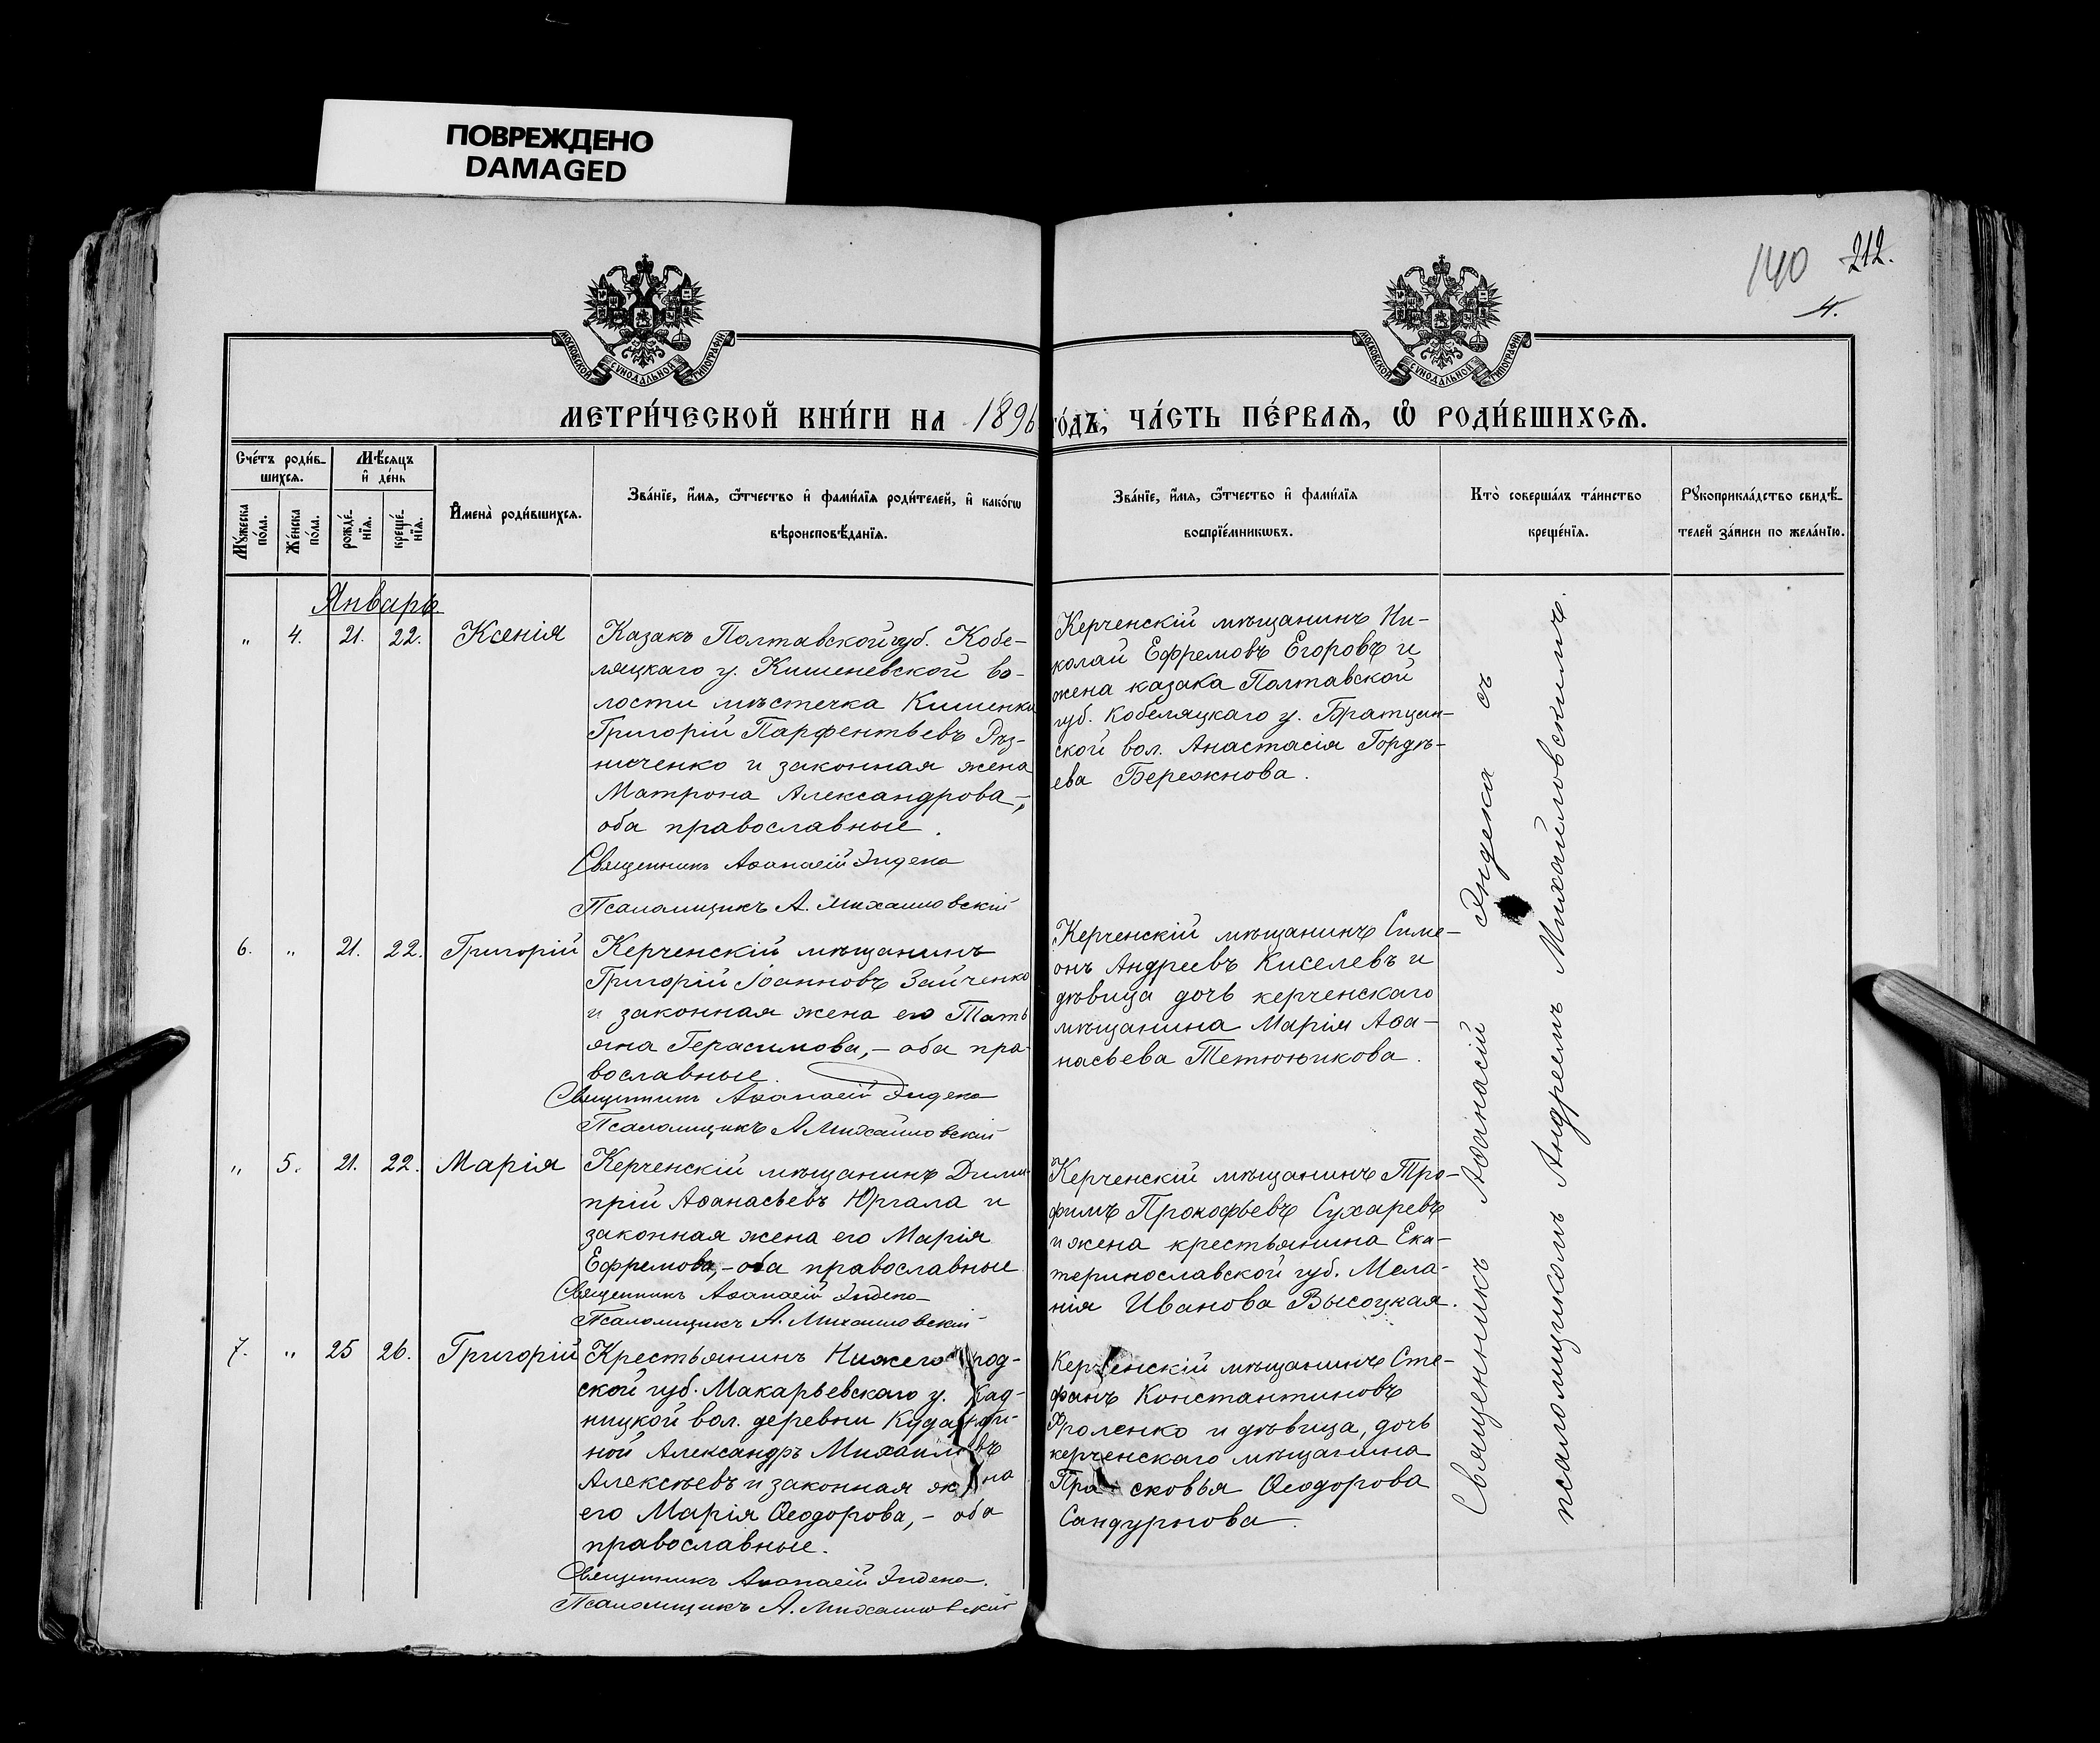 ПОВРЕЖДЕНО
DAMAGED
140 212.
4.
МОСКОВСКОЙ СѴНОДАЛЬНОЙ ТИПОГРАФІИ
МОСКОВСКОЙ СѴНОДАЛЬНОЙ ТИПОГРАФІИ
МЕТРИ́ЧЕСКОЙ КНИ́ГИ НА 1896 го́дъ, ЧА́СТЬ ПЕ́РВАЯ, Ѡ҆ РОДИ́ВШИХСЯ.
Сче́тъ роди́в-
шихся.
Мѣ́сяцъ
и҆ де́нь
Му́жеска по́ла.
Же́нска по́ла.
рожде́-
нїя.
креще́-
нїя.
И҆мена̀ роди́вшихся.
Зва́нїе, и҆́мя, ѻ҆́тчество и҆ фами́лїя роди́телей, и҆ како́гѡ
вѣроисповѣ́данїя.
Зва́нїе, и҆́мя, ѻ҆́тчество и҆ фами́лїя
воспрїе́мникѡвъ.
Кто̀ соверша́лъ та́инство
креще́нїя.
Рꙋкоприкла́дство свидѣ́-
телей за́писи по жела́нїю.
Январь.
„ 4. 21. 22. Ксенія
Казакъ Полтавской губ. Кобе-
ляцкаго у. Кишеневской во-
лости мѣстечка Кишенки
Григорій Парфентьевъ Рѣз-
ниченко и законная жена
Матрона Александрова,-
оба православные.
Священникъ Аѳанасій Яндека
Псаломщикъ А. Михайловскій
Керченскій мѣщанинъ Ни-
колай Ефремовъ Егоровъ и
жена казака Полтавской
губ. Кобеляцкаго у. Братцен-
ской вол. Анастасія Гордѣ-
ева Бережнова.
6. „ 21. 22. Григорій
Керченскій мѣщанинъ
Григорій Іоанновъ Зайченко
и законная жена его Тать
яна Герасимова,- оба пра-
вославные.
Священникъ Аѳанасій Яндека
Псаломщикъ А Михайловскій
Керченскій мѣщанинъ Симе-
онъ Андреевъ Киселевъ и
дѣвица дочь керченскаго
мѣщанина Марія Аѳа-
насьева Тетюникова.
„ 5. 21. 22. Марія
Керченскій мѣщанинъ Дими-
трій Аѳанасьевъ Юргала и
законная жена его Марія
Ефремова,- оба православные
Священникъ Аѳанасій Яндека
Псаломщикъ А. Михайловскій
Керченскій мѣщанинъ Тро-
фимъ Прокофьевъ Сухаревъ
и жена крестьянина Ека-
теринославской губ. Мела-
нія Иванова Высоцкая.
7. „ 25 26. Григорій
Крестьянинъ Нижегород-
ской губ. Макарьевскаго у. Кад-
ницкой вол. деревни
ной Александръ Михаиловъ
Алексѣевъ и законная жена
его Марія Ѳеодорова,- оба
православные.
Священникъ Аѳанасій Яндека.
Псаломщикъ А. Михайловскій
Керченскій мѣщанинъ Сте-
фанъ Константиновъ
Фроленко и дѣвица, дочь
керченскаго мѣщанина
Прасковья Ѳеодорова
Сандурнова.
Священникъ Аѳанасій Яндека съ
псаломщикомъ Андреемъ Михайловскимъ.